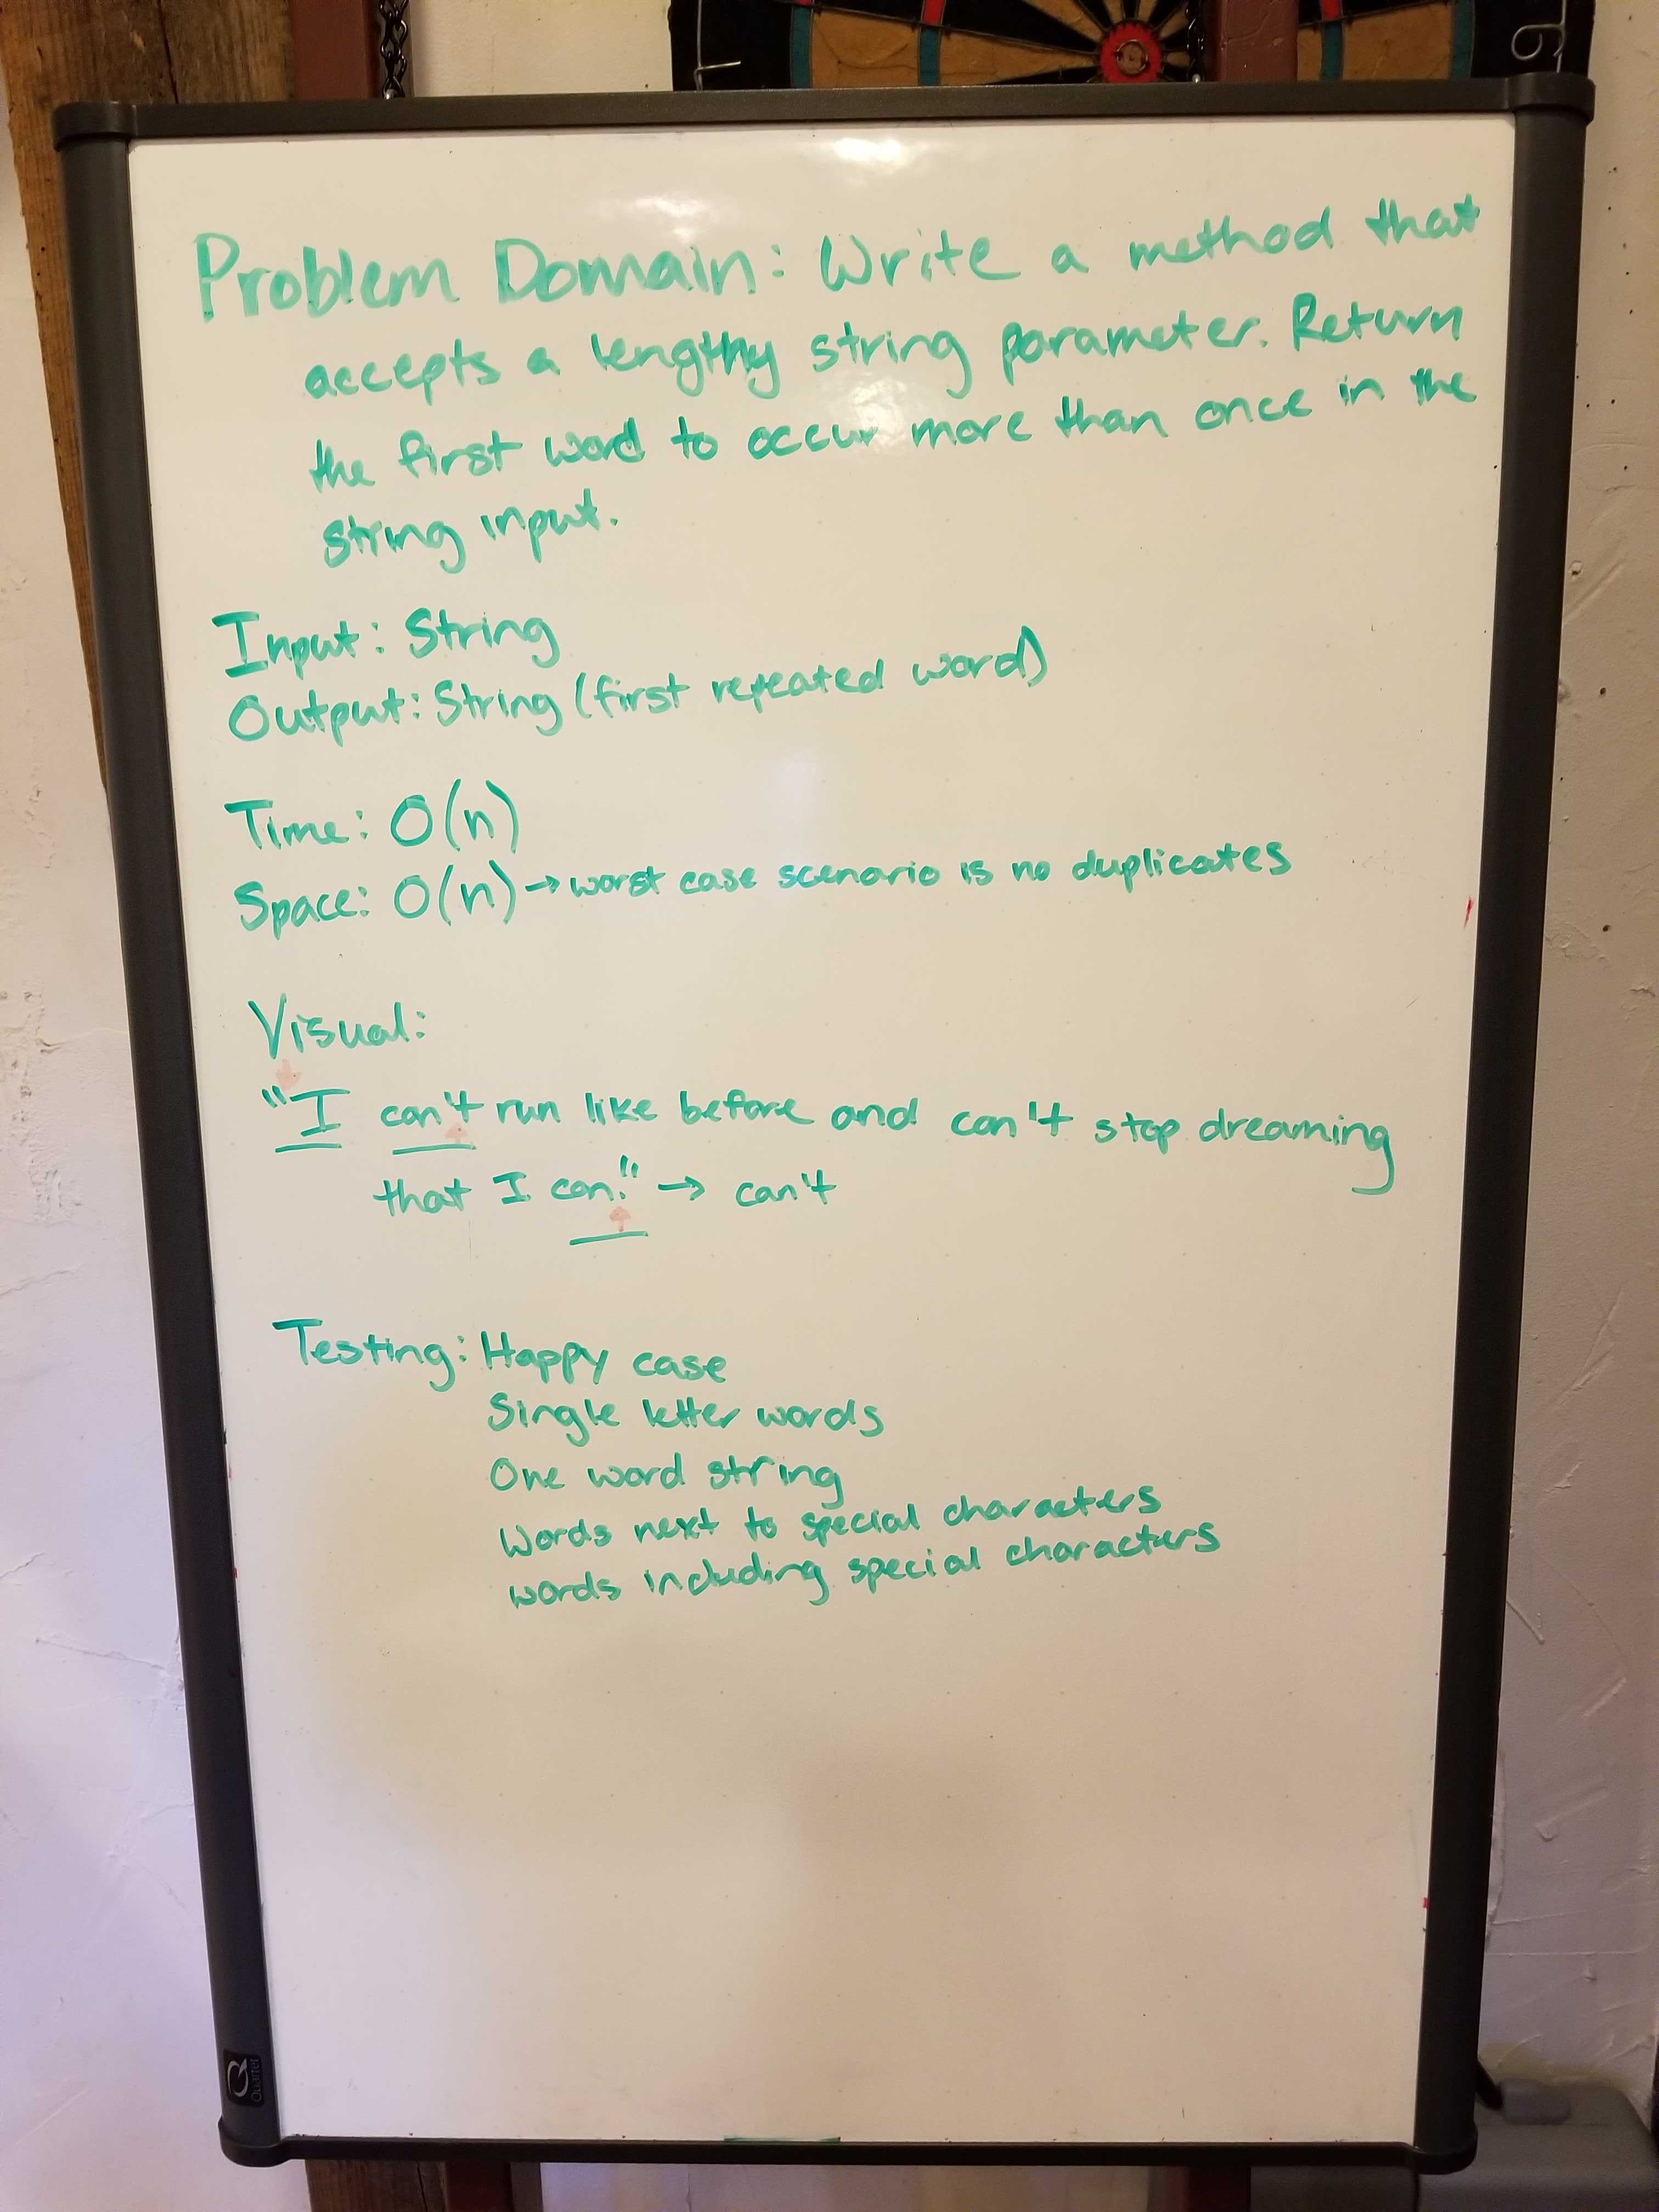 Problem Domain: Write a method that
accepts a lengthy string parameter. Return
the first word to occur more than once in the
string input.
Input: String
Output: String (first repeated word)
Time: O(n)
Space: O(n) → worst case scenario is no duplicates
Visual:
"I can't run like before and can't stop dreaming
that I can." → can't
Testing: Happy case
Single letter words
One word string
Words next to special characters
words including special characters
Quartet